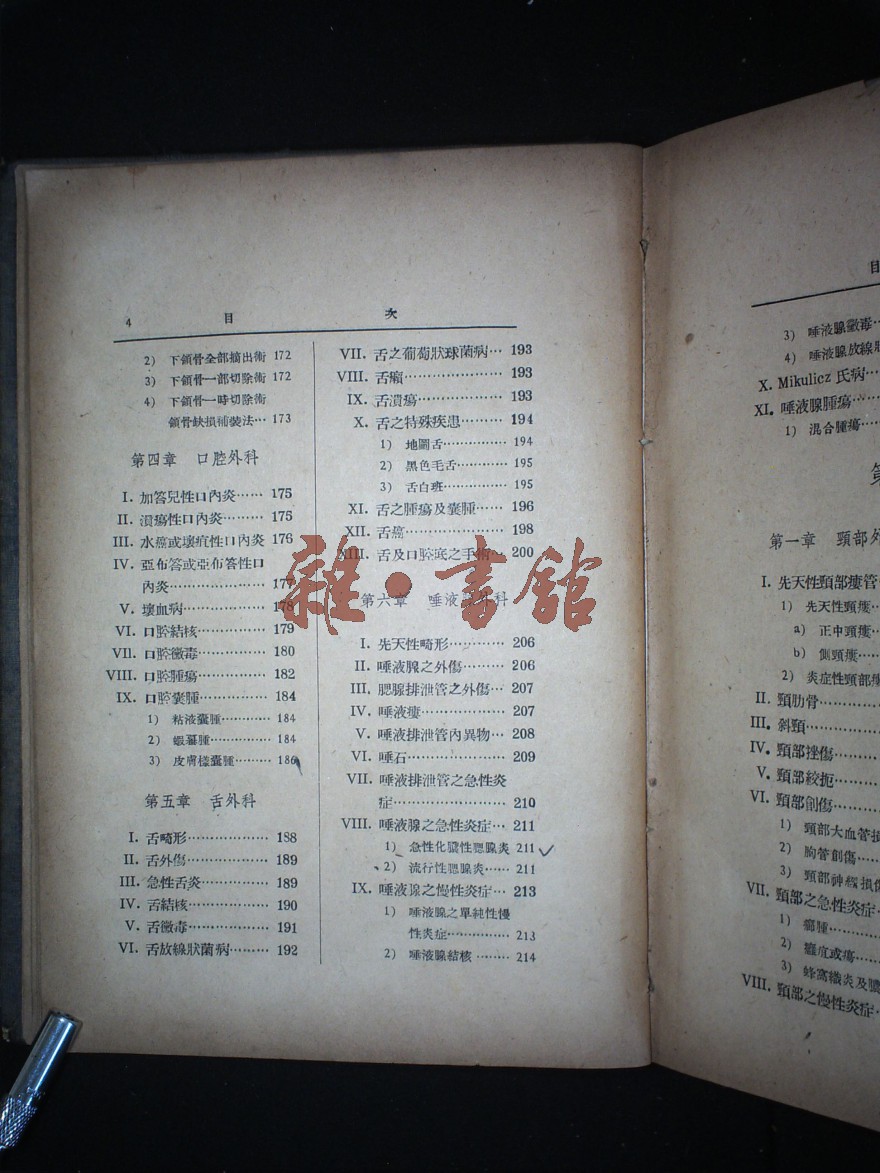 4 目 次
2) 下頷骨全部摘出術 172
3) 下頷骨一部切除術 172
4) 下頷骨一時切除術
頷骨缺損補裝法… 173
第四章 口腔外科
I. 加答兒性口內炎…… 175
II. 潰瘍性口內炎……… 175
III. 水癌或壞疽性口內炎 176
IV. 亞布答或亞布答性口
內炎……………… 177
V. 壞血病…………… 178
VI. 口腔結核………… 179
VII. 口腔黴毒………… 180
VIII. 口腔腫瘍………… 182
IX. 口腔囊腫………… 184
1) 粘液囊腫………… 184
2) 蝦蟇腫………… 184
3) 皮膚樣囊腫……… 186
第五章 舌外科
I. 舌畸形……………… 188
II. 舌外傷……………… 189
III. 急性舌炎………… 189
IV. 舌結核…………… 190
V. 舌黴毒…………… 191
VI. 舌放線狀菌病…… 192
VII. 舌之葡萄狀球菌病… 193
VIII. 舌癩……………… 193
IX. 舌潰瘍…………… 193
X. 舌之特殊疾患……… 194
1) 地圖舌………… 194
2) 黑色毛舌……… 195
3) 舌白斑………… 195
XI. 舌之腫瘍及囊腫…… 196
XII. 舌癌……………… 198
XIII. 舌及口腔底之手術… 200
第六章 唾液腺外科
I. 先天性畸形………… 206
II. 唾液腺之外傷……… 206
III. 腮腺排泄管之外傷… 207
IV. 唾液瘻…………… 207
V. 唾液排泄管內異物… 208
VI. 唾石……………… 209
VII. 唾液排泄管之急性炎
症…………………… 210
VIII. 唾液腺之急性炎症… 211
1) 急性化膿性腮腺炎 211
2) 流行性腮腺炎…… 211
IX. 唾液腺之慢性炎症… 213
1) 唾液腺之單純性慢
性炎症………… 213
2) 唾液腺結核 ……… 214
目
3) 唾液腺黴毒…
4) 唾液腺放線狀
X. Mikulicz 氏病…
XI. 唾液腺腫瘍…
1) 混合腫瘍…
第
第一章 頸部外
I. 先天性頸部瘻管
1) 先天性頸瘻…
a) 正中頸瘻…
b) 側頸瘻…
2) 炎症性頸部瘻
II. 頸肋骨…
III. 斜頸…
IV. 頸部挫傷…
V. 頸部絞扼…
VI. 頸部創傷…
1) 頸部大血管損
2) 胸管創傷…
3) 頸部神經損傷
VII. 頸部之急性炎症…
1) 癤腫…
2) 癰疽或瘍…
3) 蜂窩織炎及膿
VIII. 頸部之慢性炎症…
雜·書館